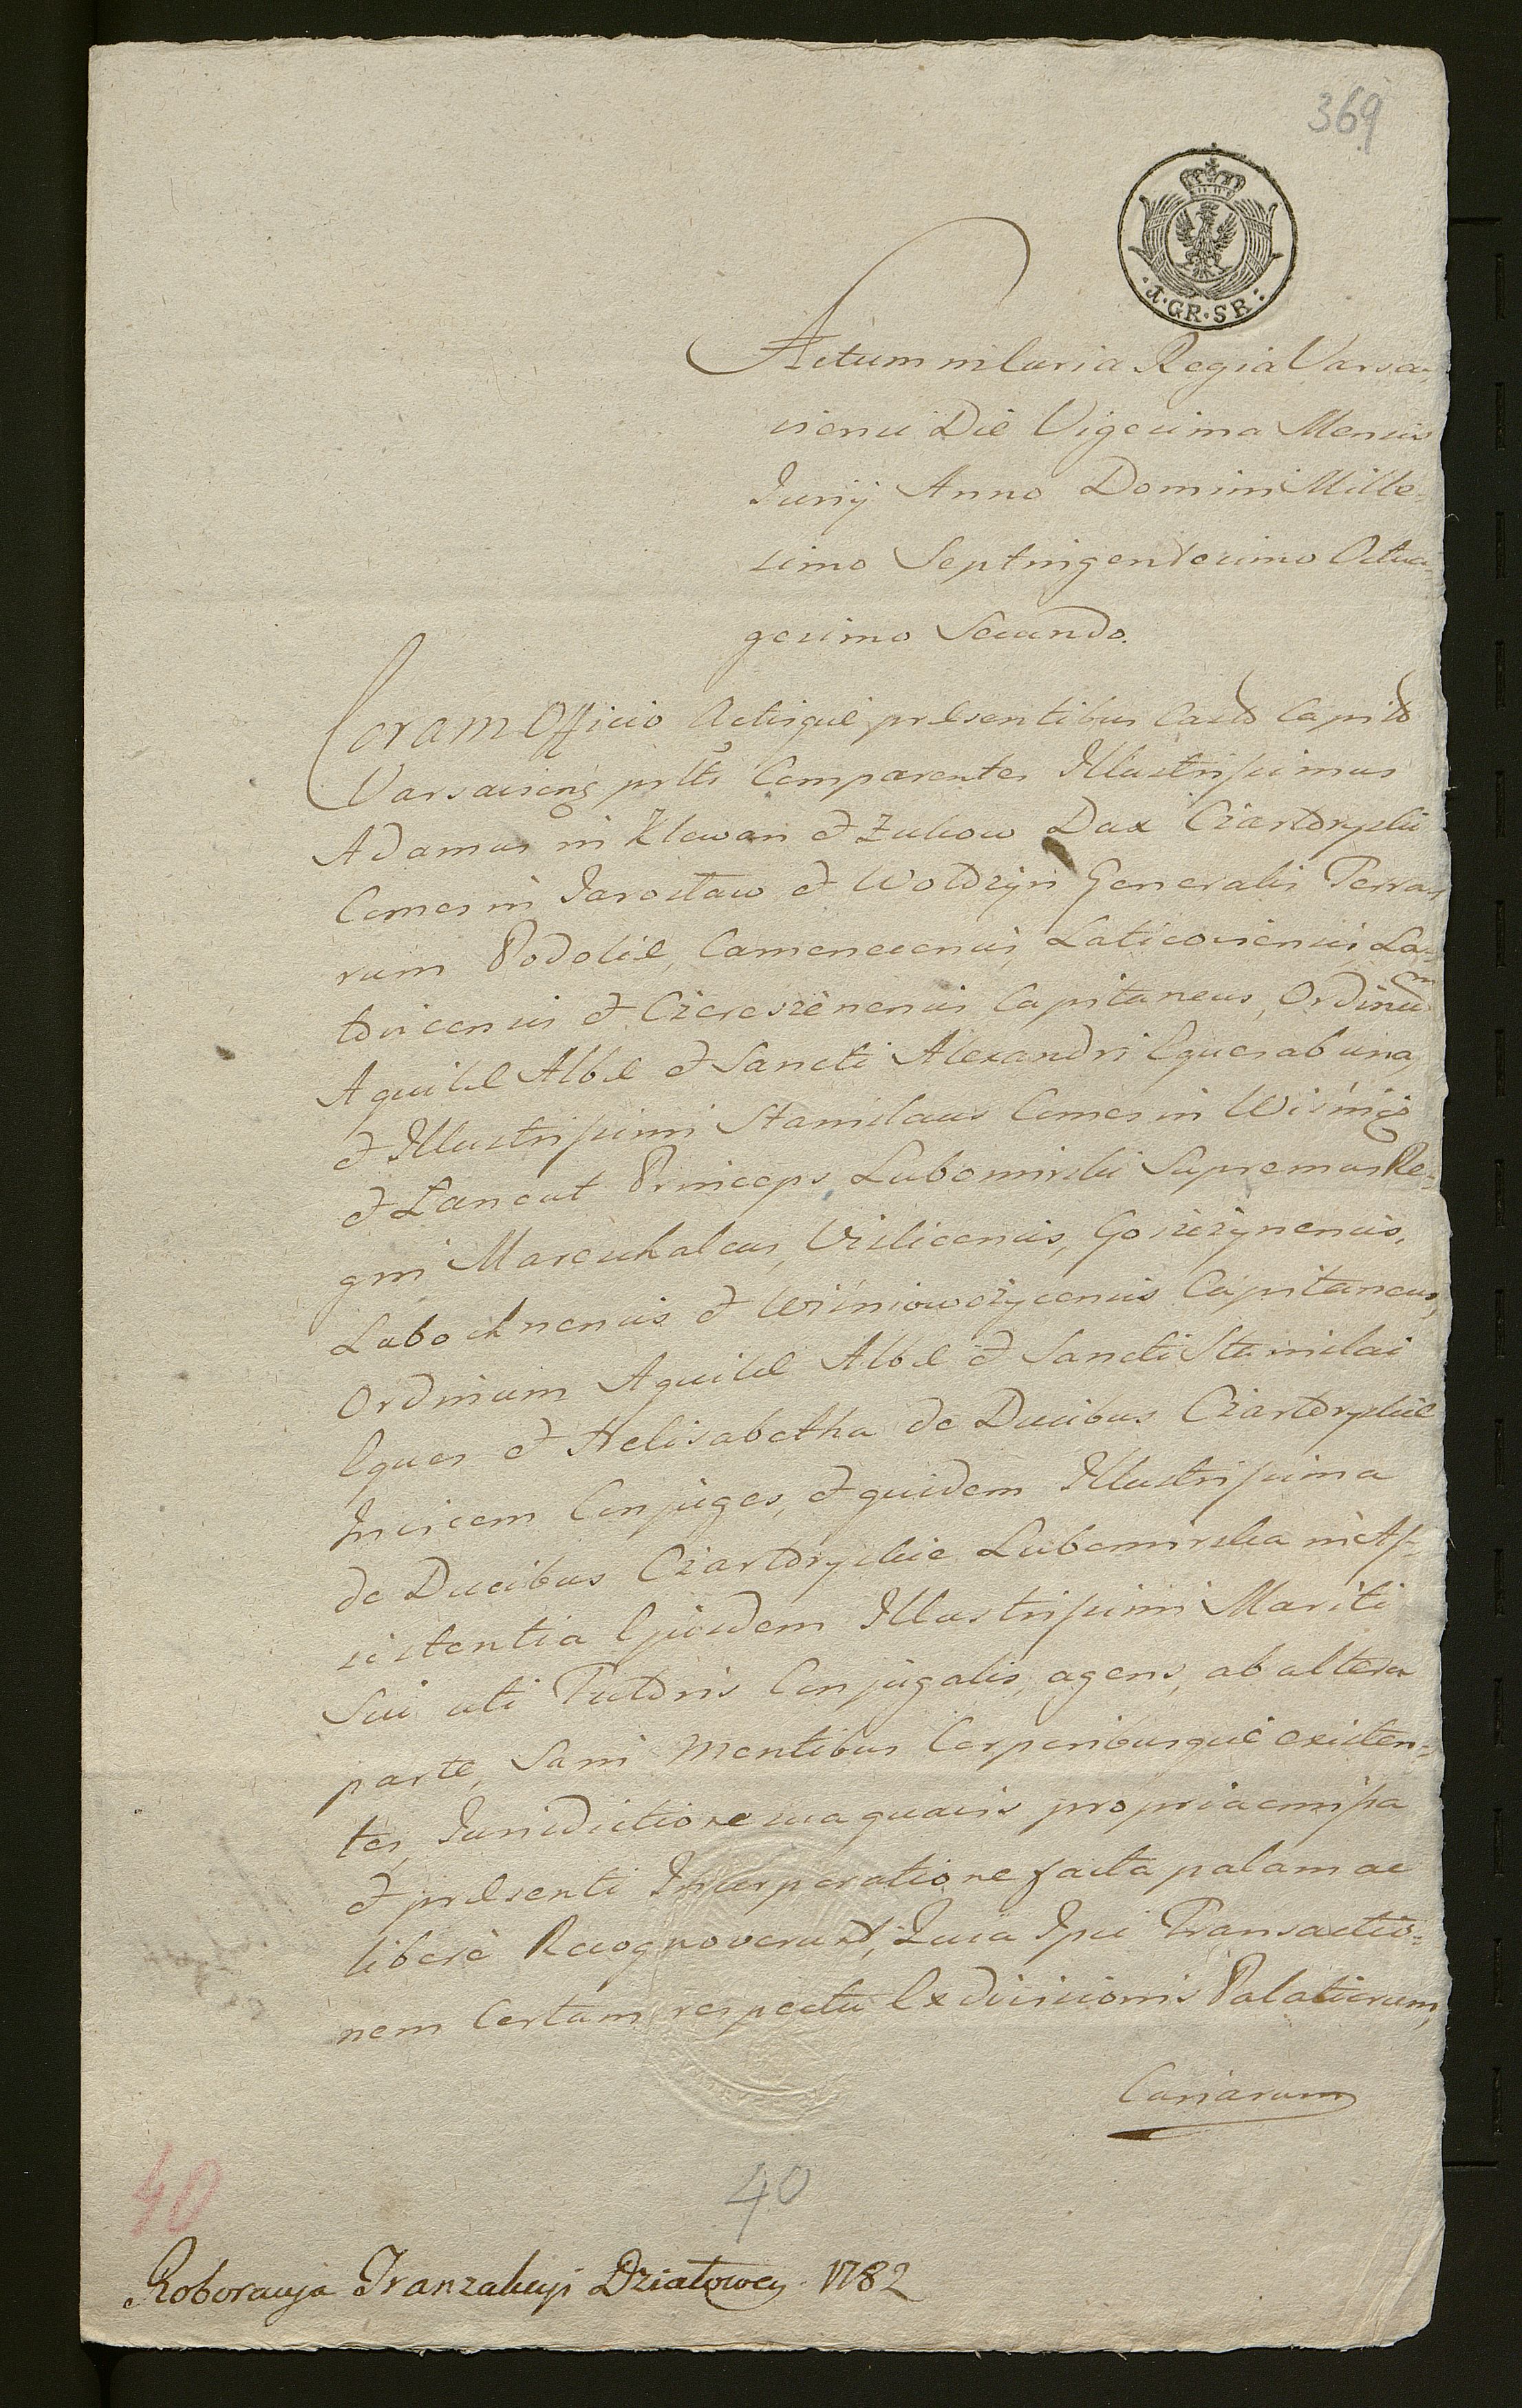 369
1·GR·SR:
Actum in Curia Regia Varsa-
viensi Die Vigesima Mensis
Junij Anno Domini Mille-
simo Septingentesimo Octua-
gesimo Secundo.
Coram Officio Actisque præsentibus Castr Capit
Varsavien prtes Comparentes Illustrissimus
Adamus in Klewan et Zukow Dux Czartoryski
Comes in Jarosław et Wołdzyn Generalis Terra-
rum Podoliæ, Camenecensis, Laticoviensis, La-
tovicensis et Czereszenensis Capitaneus, Ordinum
Aquilæ Albæ et Sancti Alexandri Eques ab una,
et Illustrissimi Stanislaus Comes in Wiśnicz
et Łancut Princeps Lubomirski Supremus Re-
gni Mareschalcus, Vislicensis, Goszczynensis,
Lubochnensis et Wiśniowczycensis Capitaneus,
Ordinum Aquilæ Albæ et Sancti Stanislai
Eques et Helisabetha de Ducibus Czartoryskie
Invicem Conjuges, et quidem Illustrissima
de Ducibus Czartoryskie Lubomirska in As-
sistentia Ejusdem Illustrissimi Mariti
Sui uti Tutoris Conjugalis, agens, ab altera
parte, Sani Mentibus Corporibusque existen-
tes, Jurisdictione sua quavis propria omissa
et præsenti Incorporatione facta palam ac
liberè Recognoverunt, Quia Ipsi Transactio-
nem Certam respectu Exdivisionis Palatiorum,
Curiarum
40
40
Roboracyja Tranzakcyi Działowey 1782